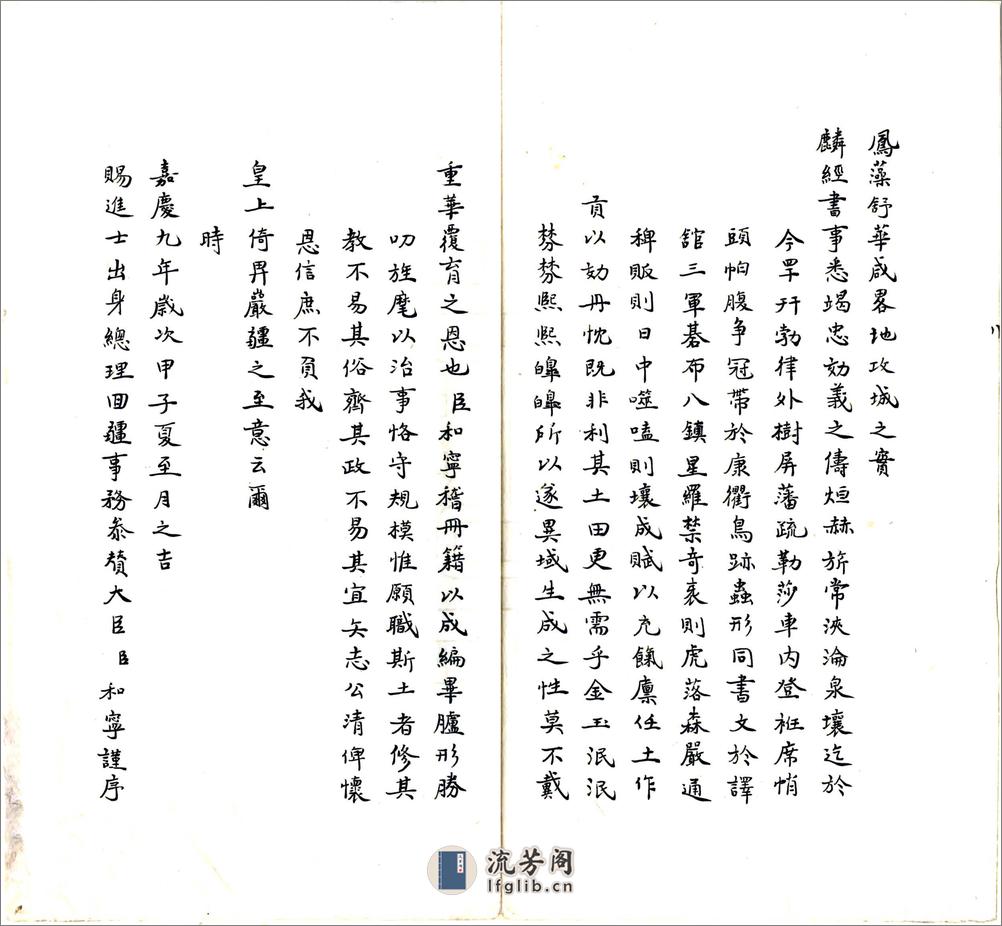 鳳藻舒華咸畧地攻城之實
麟經書事悉竭忠効義之儔烜赫旂常浹淪泉壤迄於
今罕幵勃律外樹屏藩疏勒莎車內登袵席悄
頭帕腹爭冠帶於康衢鳥跡蟲形同書文於譯
舘三軍碁布八鎮星羅禁奇袤則虎落森嚴通
稗販則日中噬嗑則壤成賦以充餼廩任土作
貢以効丹忱既非利其土田更無需乎金玉泯泯
棼棼熙熙皞皞所以遂異域生成之性莫不戴
重華覆育之恩也臣和寧稽冊籍以成編畢臚形勝
叨旌麾以治事恪守規模惟願職斯土者修其
教不易其俗齊其政不易其宜矢志公清俾懷
恩信庶不負我
皇上倚畀嚴疆之至意云爾
時
嘉慶九年歲次甲子夏至月之吉
賜進士出身總理回疆事務叅贊大臣臣和寧謹序
流芳阁
lfglib.cn